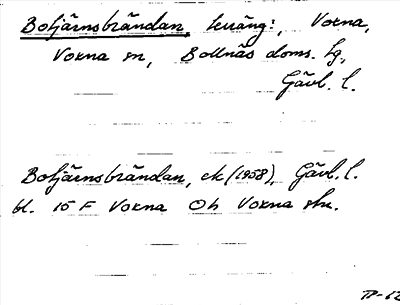 Botjärnsbrändan, terräng:, Voxna,
Voxna sn, Bollnäs doms. hg,
Gävl. l.
Botjärnsbrändan, ek (1958), Gävl. l.
bl. 15 F Voxna Oh Voxna skn.